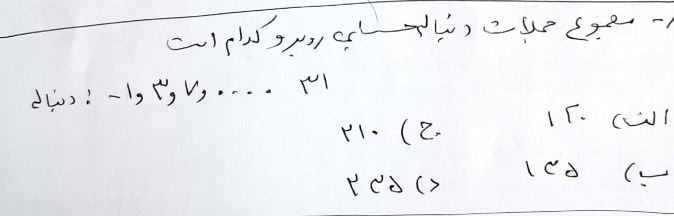 ۱- مجموع جملات دنباله حسابی روبرو کدام است
دنباله : ۱- و ۳ و ۷ و .... ۳۱
الف) ۱۲۰ ج) ۲۱۰
ب) ۱۳۵ د) ۲۳۵